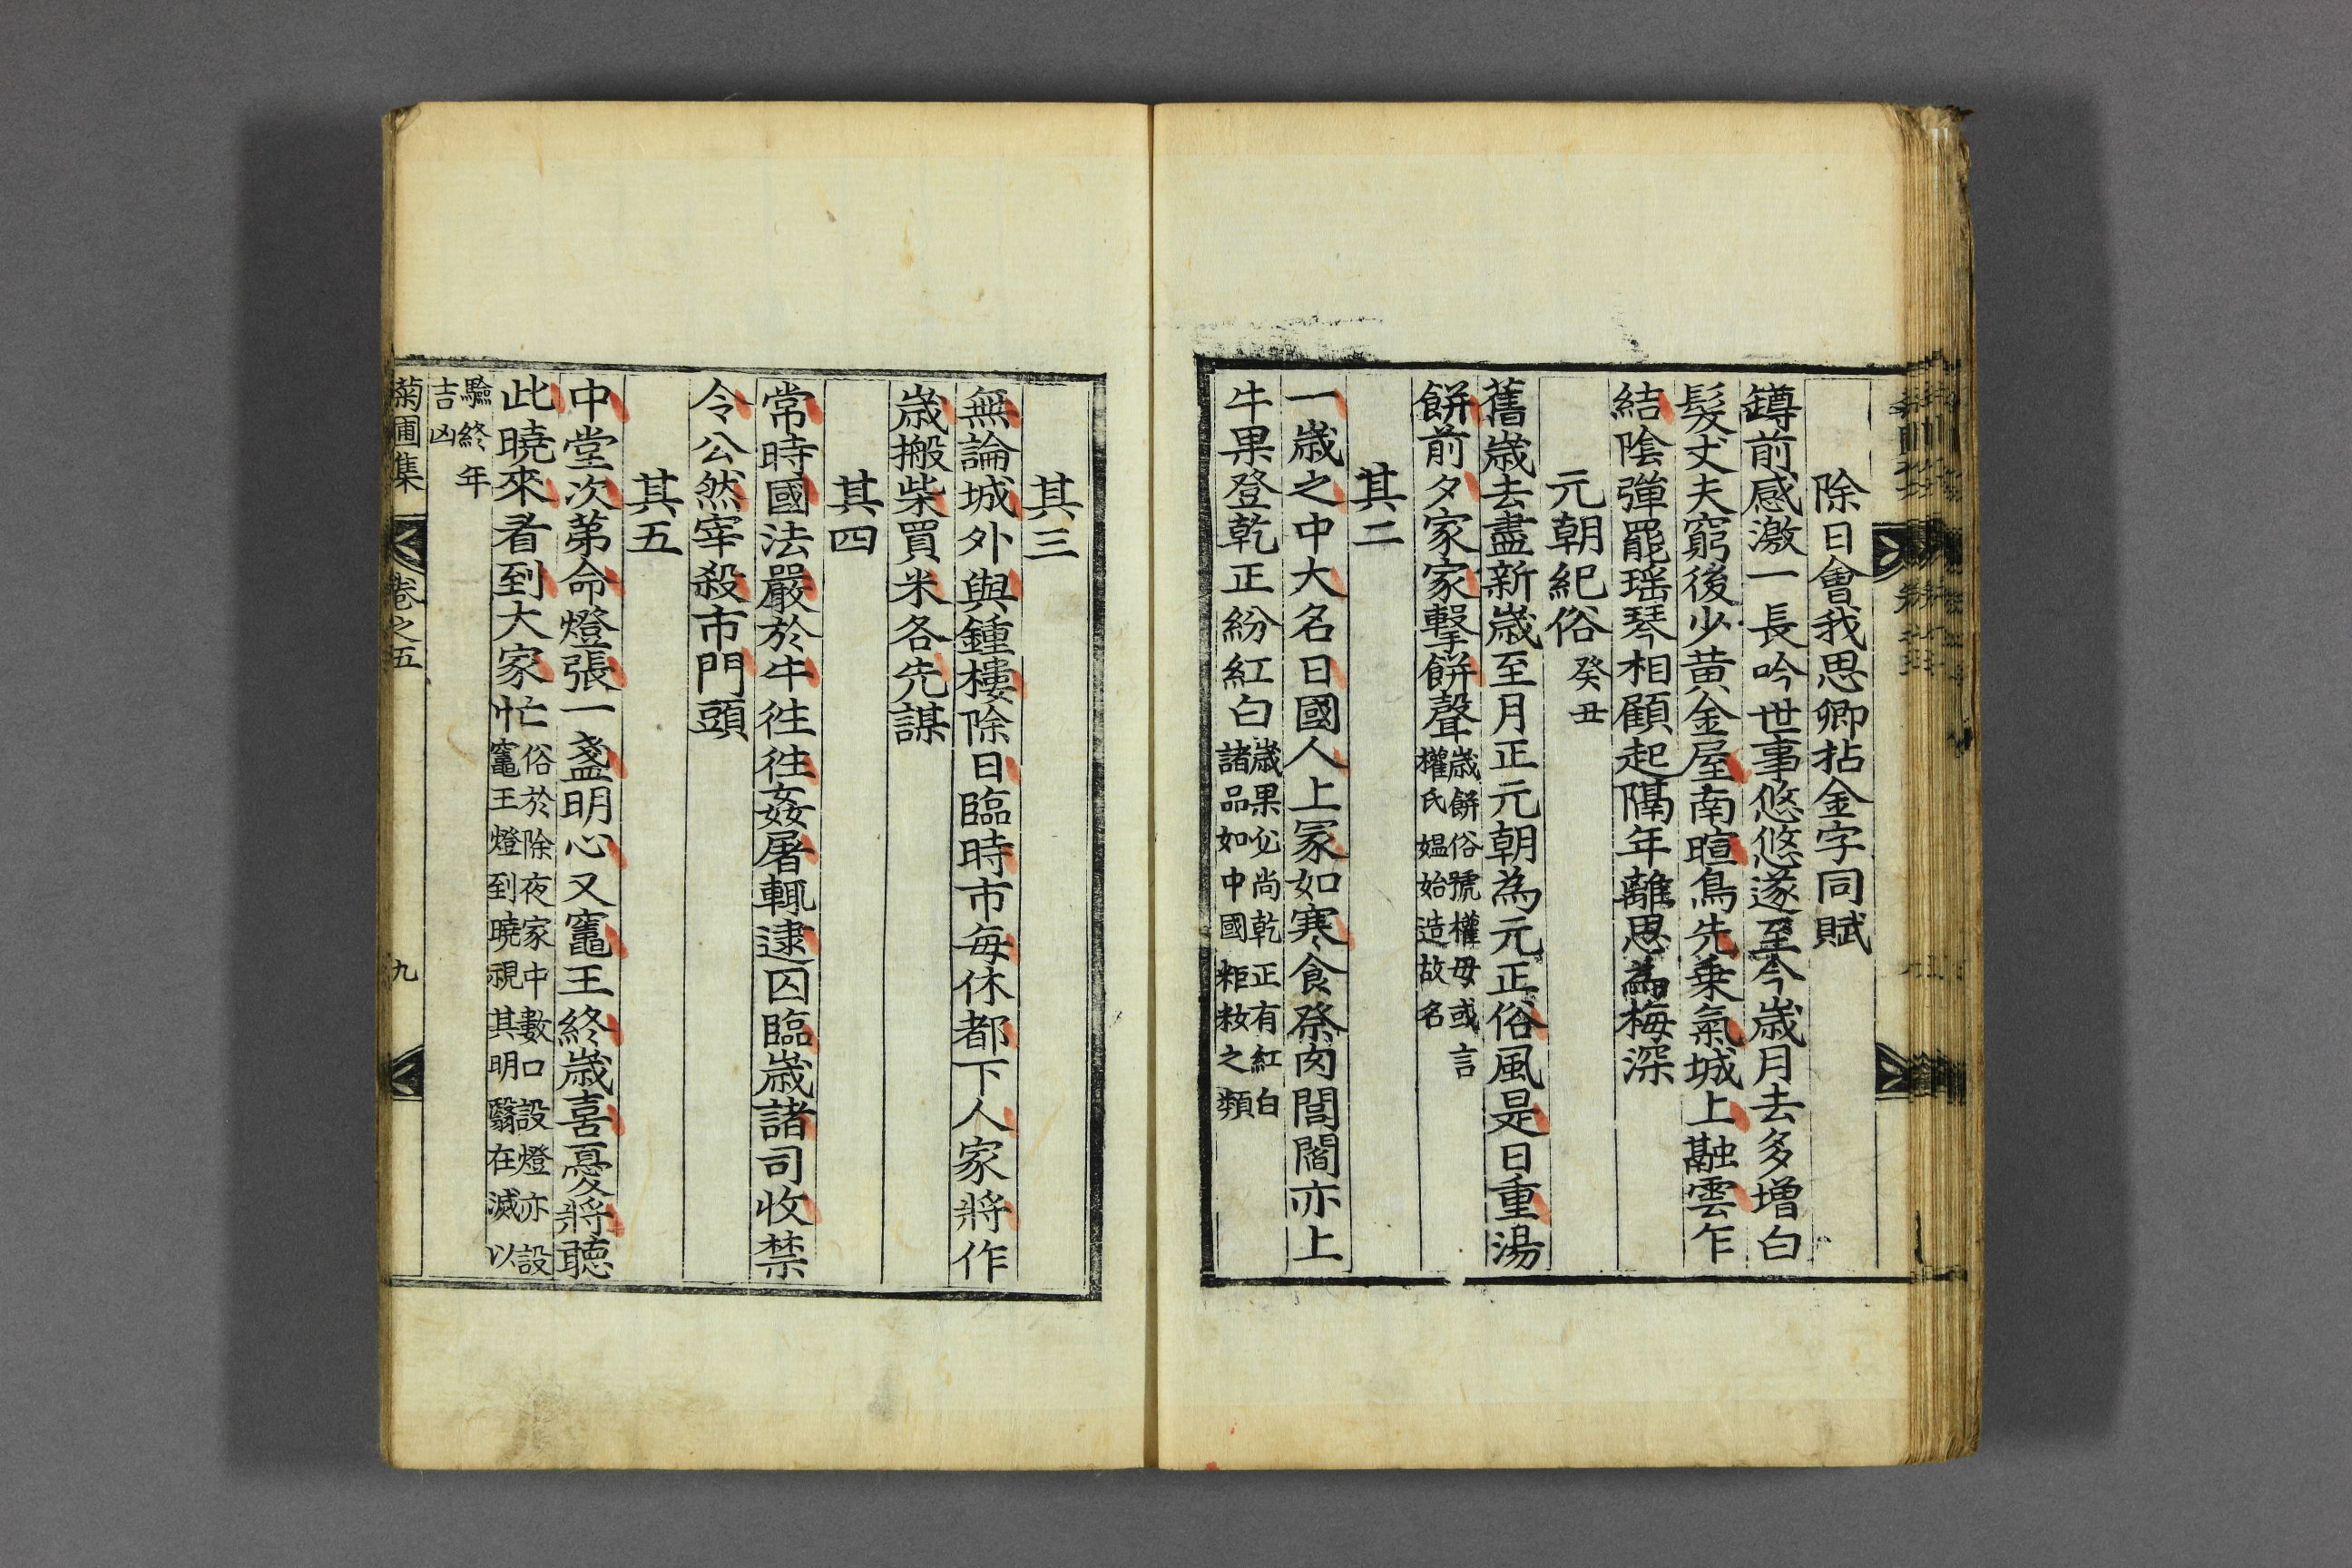 除日會我思卿拈金字同賦
鐏前感激一長吟世事悠悠遂至今歲月去多增白
髮丈夫窮後少黃金屋南暄鳥先乗氣城上融雲乍
結陰彈罷瑶琴相顧起隔年離思為梅深
元朝紀俗癸丑
舊歲去盡新歲至月正元朝為元正俗風是日重湯
餅前夕家家擊餅聲歲餅俗號權母或言
權氏媼始造故名
其二
一歲之中大名日國人上冢如寒食祭肉閭閻亦上
牛果登乾正紛紅白歲果必尚乾正有紅白
諸品如中國粔籹之類
其三
無論城外與鍾樓除日臨時市每休都下人家將作
歲搬柴買米各先謀
其四
常時國法嚴於牛徃徃姦屠輒逮囚臨歲諸司收禁
令公然宰殺市門頭
其五
中堂次第命燈張一盞明心又竈王終歲喜憂將聽
此曉來看到大家忙俗於除夜家中數口設燈亦設
竈王燈到曉視其明翳在滅以
驗終年
吉凶
菊圃集 卷之五 九